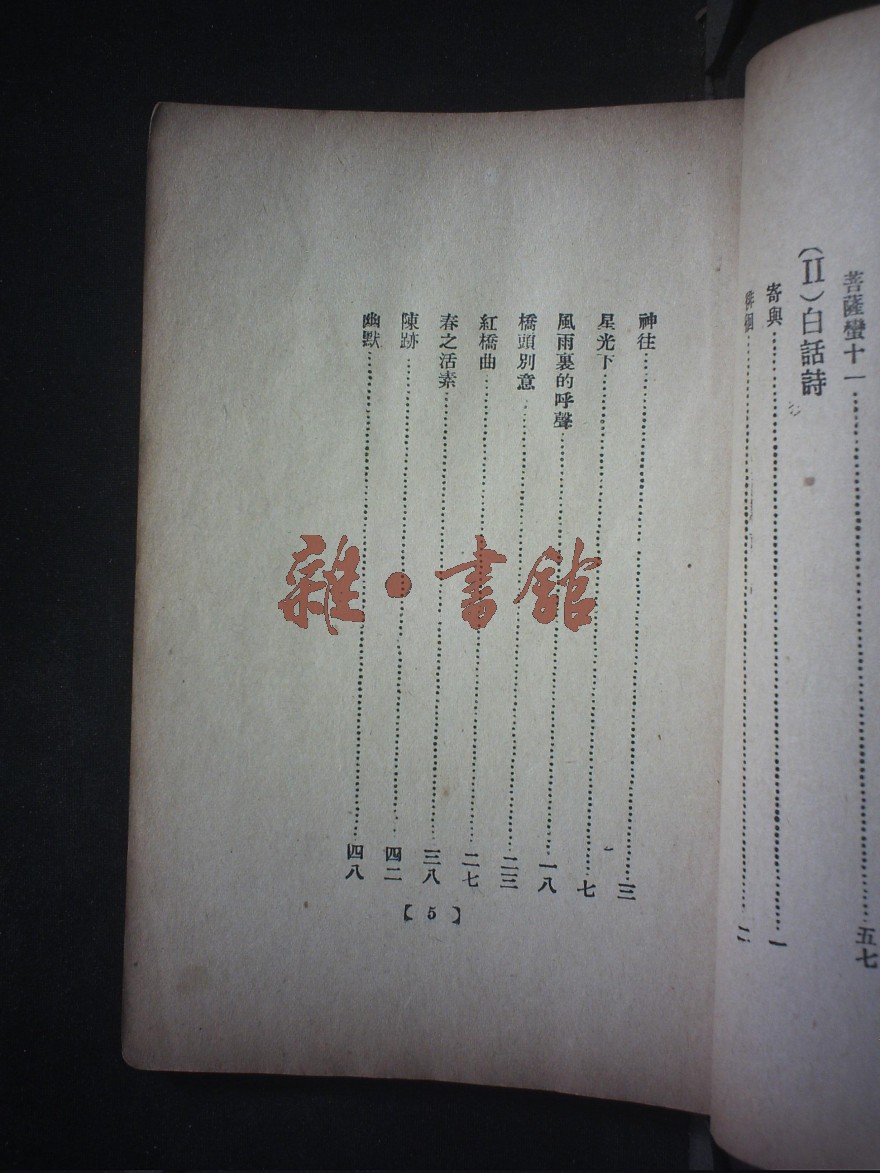 菩薩蠻十一……五七
(II)白話詩
寄與……一
徘徊……二
神往……三
星光下……七
風雨裏的呼聲……一八
橋頭別意……二三
紅橋曲……二七
春之活素……三八
陳跡……四二
幽默……四八
【5】
雜·書館